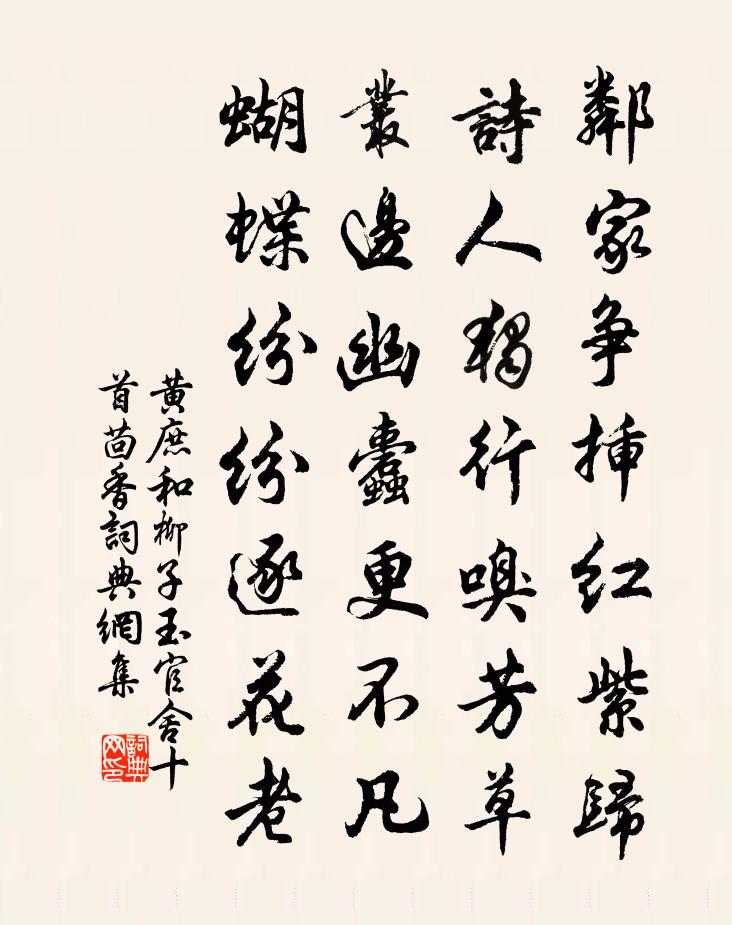 鄰家爭插紅紫歸
詩人獨行嗅芳草
叢邊幽蠹更不凡
蝴蝶紛紛逐花老
黃庶和柳子玉官舍十
首茴香詞典網集
詞典網印